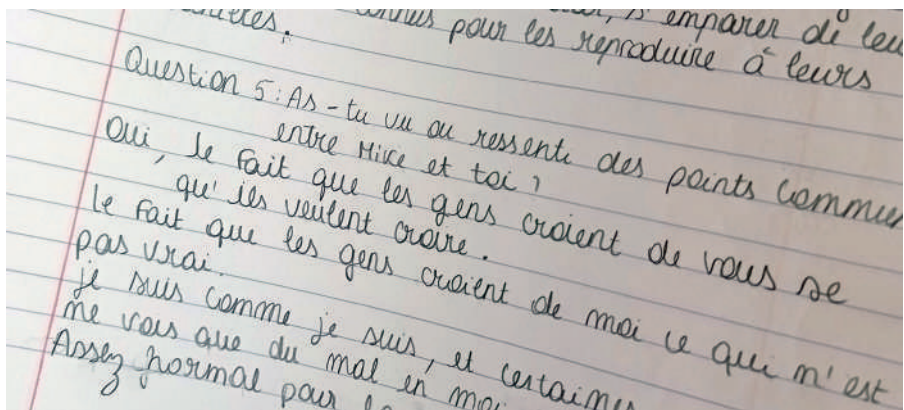 pour les reproduire à leurs
Question 5 : As-tu vu ou ressenti des points commun
entre Mike et toi ?
Oui, le fait que les gens croient de vous se
qu'ils veulent croire.
Le fait que les gens croient de moi ce qui n'est
pas vrai.
je suis comme je suis, et certaines
ne vois que du mal en moi
Assez normal pour